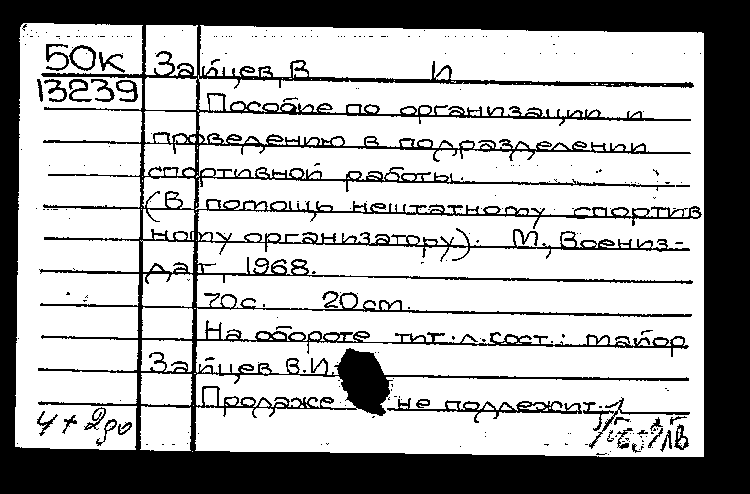 50К
13239
Зайцев, В И
Пособие по организации и
проведению в подразделении
спортивной работы.
(В помощь нештатному спортив
ному организатору). М., Воениз-
дат, 1968.
70с. 20 см.
На обороте тит.л.сост.: майор
Зайцев В.И.
Продаже не подлежит.
4 +